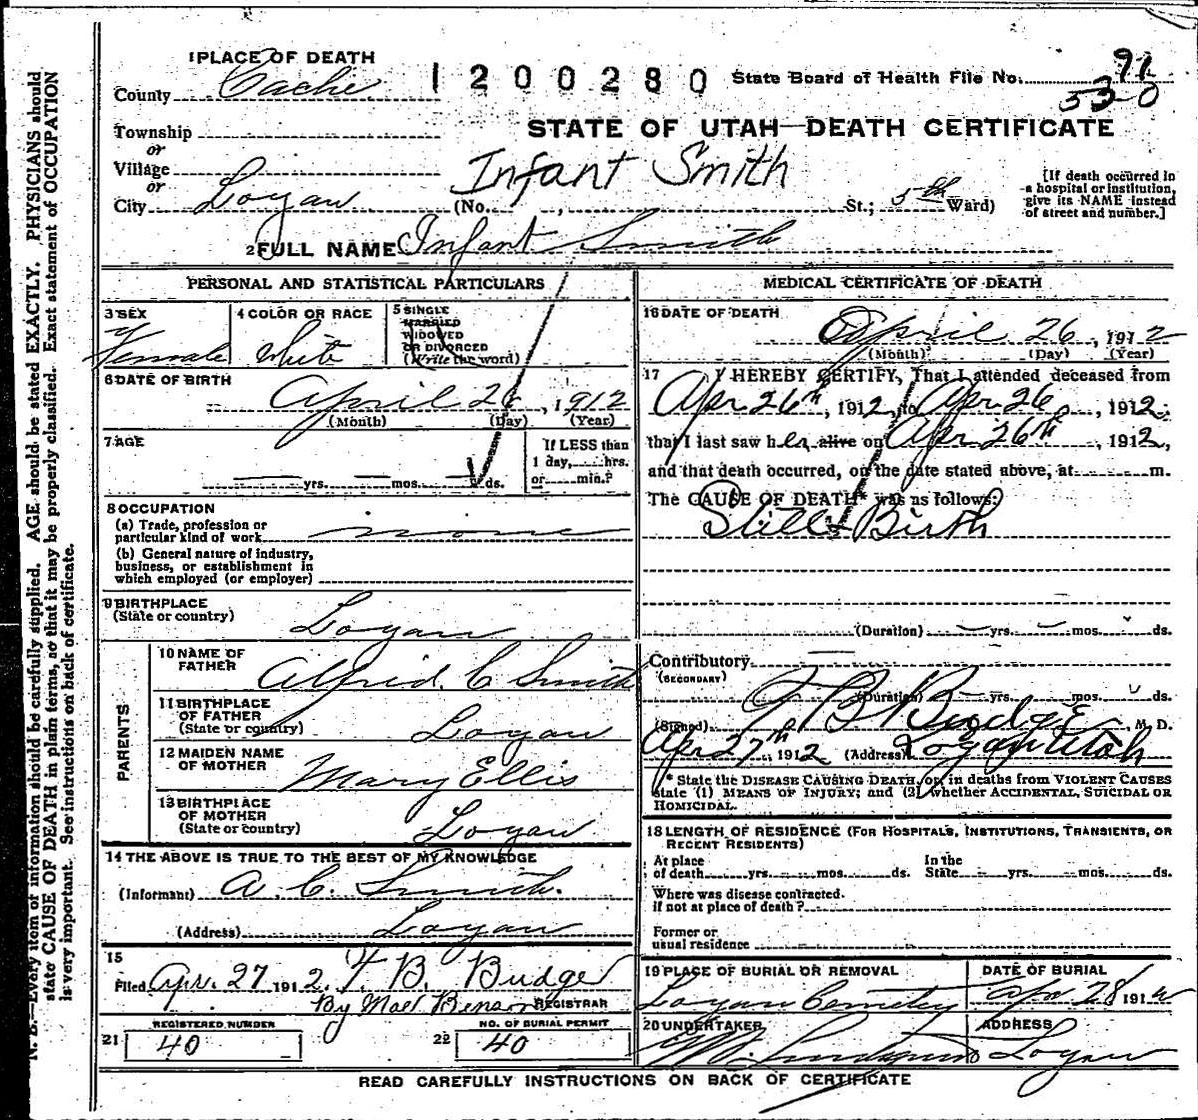 1 PLACE OF DEATH
County Cache
1200280
State Board of Health File No. 91
530
Township
or
Village
or
City Logan
STATE OF UTAH—DEATH CERTIFICATE
Infant Smith
(No. , St.; 5th Ward)
[If death occurred in
a hospital or institution,
give its NAME instead
of street and number.]
2 FULL NAME Infant Smith
PERSONAL AND STATISTICAL PARTICULARS
3 SEX
Female
4 COLOR OR RACE
White
5 SINGLE
MARRIED
WIDOWED
OR DIVORCED
(Write the word)
6 DATE OF BIRTH
April 26, 1912
(Month) (Day) (Year)
7 AGE
yrs. mos. ds.
If LESS than
1 day, hrs.
or min.?
8 OCCUPATION
(a) Trade, profession or
particular kind of work none
(b) General nature of industry,
business, or establishment in
which employed (or employer)
9 BIRTHPLACE
(State or country)
Logan
PARENTS
10 NAME OF
FATHER
Alfrid. C Smith
11 BIRTHPLACE
OF FATHER
(State or country)
Logan
12 MAIDEN NAME
OF MOTHER
Mary Ellis
13 BIRTHPLACE
OF MOTHER
(State or country)
Logan
14 THE ABOVE IS TRUE TO THE BEST OF MY KNOWLEDGE
(Informant) A. C. Smith.
(Address) Logan
15
Filed Apr. 27 1912. B. Budge
By Benson REGISTRAR
REGISTERED NUMBER
21 40
NO. OF BURIAL PERMIT
22 40
MEDICAL CERTIFICATE OF DEATH
16 DATE OF DEATH
April 26, 1912
(Month) (Day) (Year)
17 I HEREBY CERTIFY, That I attended deceased from
Apr 26th, 1912, to Apr 26, 1912,
that I last saw her alive on Apr 26th, 1912,
and that death occurred, on the date stated above, at m.
The CAUSE OF DEATH* was as follows:
Still Birth
(Duration) yrs. mos. ds.
Contributory
(SECONDARY)
(Duration) yrs. mos. ds.
(Signed) B Budge M. D.
Apr 27th, 1912 (Address) Logan Utah
* State the DISEASE CAUSING DEATH, or, in deaths from VIOLENT CAUSES
state (1) MEANS OF INJURY; and (2) whether ACCIDENTAL, SUICIDAL OR
HOMICIDAL.
18 LENGTH OF RESIDENCE (FOR HOSPITALS, INSTITUTIONS, TRANSIENTS, OR
RECENT RESIDENTS)
At place
of death yrs. mos. ds.
In the
State yrs. mos. ds.
Where was disease contracted.
if not at place of death?
Former or
usual residence
19 PLACE OF BURIAL OR REMOVAL
Logan Cemetery
DATE OF BURIAL
Apr 28 1912
20 UNDERTAKER
ADDRESS
Logan
READ CAREFULLY INSTRUCTIONS ON BACK OF CERTIFICATE
N. B.—Every item of information should be carefully supplied. AGE should be stated EXACTLY. PHYSICIANS should
state CAUSE OF DEATH in plain terms, so that it may be properly classified. Exact statement of OCCUPATION
is very important. See instructions on back of certificate.